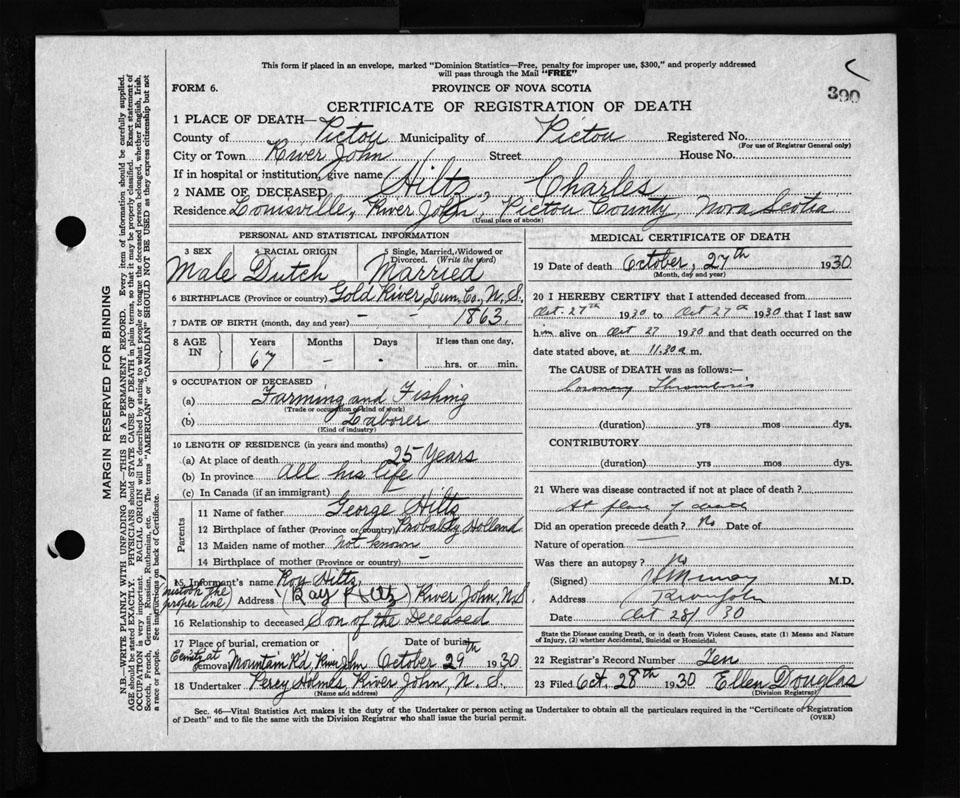 This form if placed in an envelope, marked "Dominion Statistics—Free, penalty for improper use, $300," and properly addressed
will pass through the Mail "FREE"
390
FORM 6.
PROVINCE OF NOVA SCOTIA
CERTIFICATE OF REGISTRATION OF DEATH
1 PLACE OF DEATH—
County of Pictou Municipality of Pictou Registered No.
(For use of Registrar General only)
City or Town River John Street House No.
If in hospital or institution, give name
2 NAME OF DECEASED Hiltz, Charles
Residence Louisville, River John, Pictou County, Nova Scotia
(Usual place of abode)
PERSONAL AND STATISTICAL INFORMATION
3 SEX 4 RACIAL ORIGIN 5 Single, Married, Widowed or Divorced. (Write the word)
Male Dutch Married
6 BIRTHPLACE (Province or country) Gold River, Lun. Co., N. S.
7 DATE OF BIRTH (month, day and year) – – 1863.
8 AGE IN Years Months Days If less than one day,
67 – . hrs. or min.
9 OCCUPATION OF DECEASED
(a) Farming and Fishing
(Trade or occupation of kind of work)
(b) Laborer
(Kind of industry)
10 LENGTH OF RESIDENCE (in years and months)
(a) At place of death 25 Years
(b) In province All his life
(c) In Canada (if an immigrant)
Parents
11 Name of father George Hiltz
12 Birthplace of father (Province or country) Probably Holland
13 Maiden name of mother Not known
14 Birthplace of mother (Province or country) –
15 Informant's name Roy Hiltz
(mistook the proper line) Address (Ray Hiltz) River John, N.S
16 Relationship to deceased Son of the Deceased
17 Place of burial, cremation or removal Date of burial
Mountain Rd, River John October 29th 1930
18 Undertaker Percy Holmes, River John, N. S.
(Name and address)
MEDICAL CERTIFICATE OF DEATH
19 Date of death October, 27th 1930
(Month, day and year)
20 I HEREBY CERTIFY that I attended deceased from
Oct. 27th 1930 to Oct 27th 1930 that I last saw
him alive on Oct 27 1930 and that death occurred on
date stated above, at 11.30 a m.
The CAUSE of DEATH was as follows:—
Coronary Thrombosis
(duration) yrs mos dys.
CONTRIBUTORY
(duration) yrs mos dys.
21 Where was disease contracted if not at place of death?
At place of death
Did an operation precede death? No Date of
Nature of operation —
Was there an autopsy? No
(Signed) M.D.
Address River John
Date Oct 28/ 30
State the Disease causing Death, or in death from Violent Causes, state (1) Means and Nature
of Injury, (2) whether Accidental, Suicidal or Homicidal.
22 Registrar's Record Number Ten
23 Filed Oct. 28th 1930 Ellen Douglas
(Division Registrar)
Sec. 46—Vital Statistics Act makes it the duty of the Undertaker or person acting as Undertaker to obtain all the particulars required in the "Certificate of Registration
of Death" and to file the same with the Division Registrar who shall issue the burial permit.
(OVER)
MARGIN RESERVED FOR BINDING
N.B.—WRITE PLAINLY WITH UNFADING INK—THIS IS A PERMANENT RECORD. Every item of information should be carefully supplied.
AGE should be stated EXACTLY. PHYSICIANS should STATE CAUSE OF DEATH in plain terms, so that it may be properly classified. Exact statement of
OCCUPATION is very important. RACIAL ORIGIN will be described by stating to what people or tongue the deceased person belonged, whether English, Irish,
Scotch, French, German, Russian, Ruthenian, etc. The terms "AMERICAN" or "CANADIAN" SHOULD NOT BE USED as they express citizenship but not
a race or people. See instructions on back of Certificate.